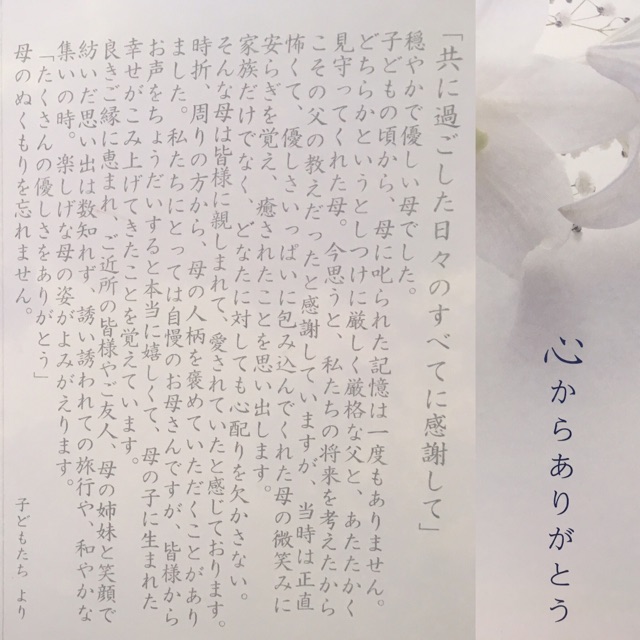 「共に過ごした日々のすべてに感謝して」
穏やかで優しい母でした。
子どもの頃から、母に叱られた記憶は一度もありません。
どちらかというとしつけに厳しく厳格な父と、あたたかく
見守ってくれた母。今思うと、私たちの将来を考えたから
こその父の教えだったと感謝していますが、当時は正直
怖くて、優しさいっぱいに包み込んでくれた母の微笑みに
安らぎを覚え、癒されたことを思い出します。
家族だけでなく、どなたに対しても心配りを欠かさない。
そんな母は皆様に親しまれて、愛されていたと感じております。
時折、周りの方から、母の人柄を褒めていただくことがあり
ました。私たちにとっては自慢のお母さんですが、皆様から
お声をちょうだいすると本当に嬉しくて、母の子に生まれた
幸せがこみ上げてきたことを覚えています。
良きご縁に恵まれ、ご近所の皆様やご友人、母の姉妹と笑顔で
紡いだ思い出は数知れず、誘い誘われての旅行や、和やかな
集いの時。楽しげな母の姿がよみがえります。
「たくさんの優しさをありがとう」
母のぬくもりを忘れません。
子どもたち より
心からありがとう